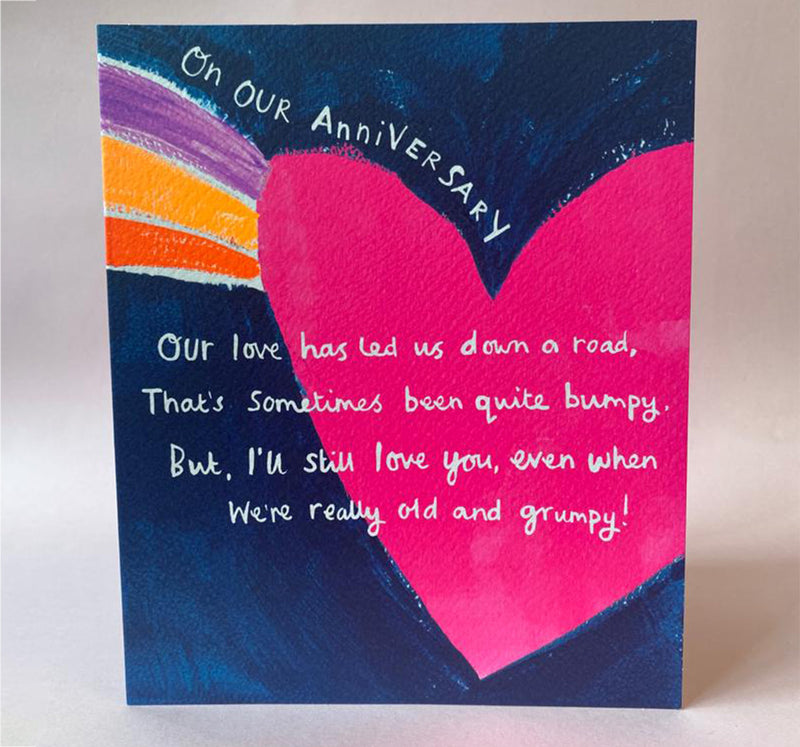 On OUR AnniVERSARY
Our love has led us down a road,
That's sometimes been quite bumpy.
But, I'll still love you, even when
We're really old and grumpy!